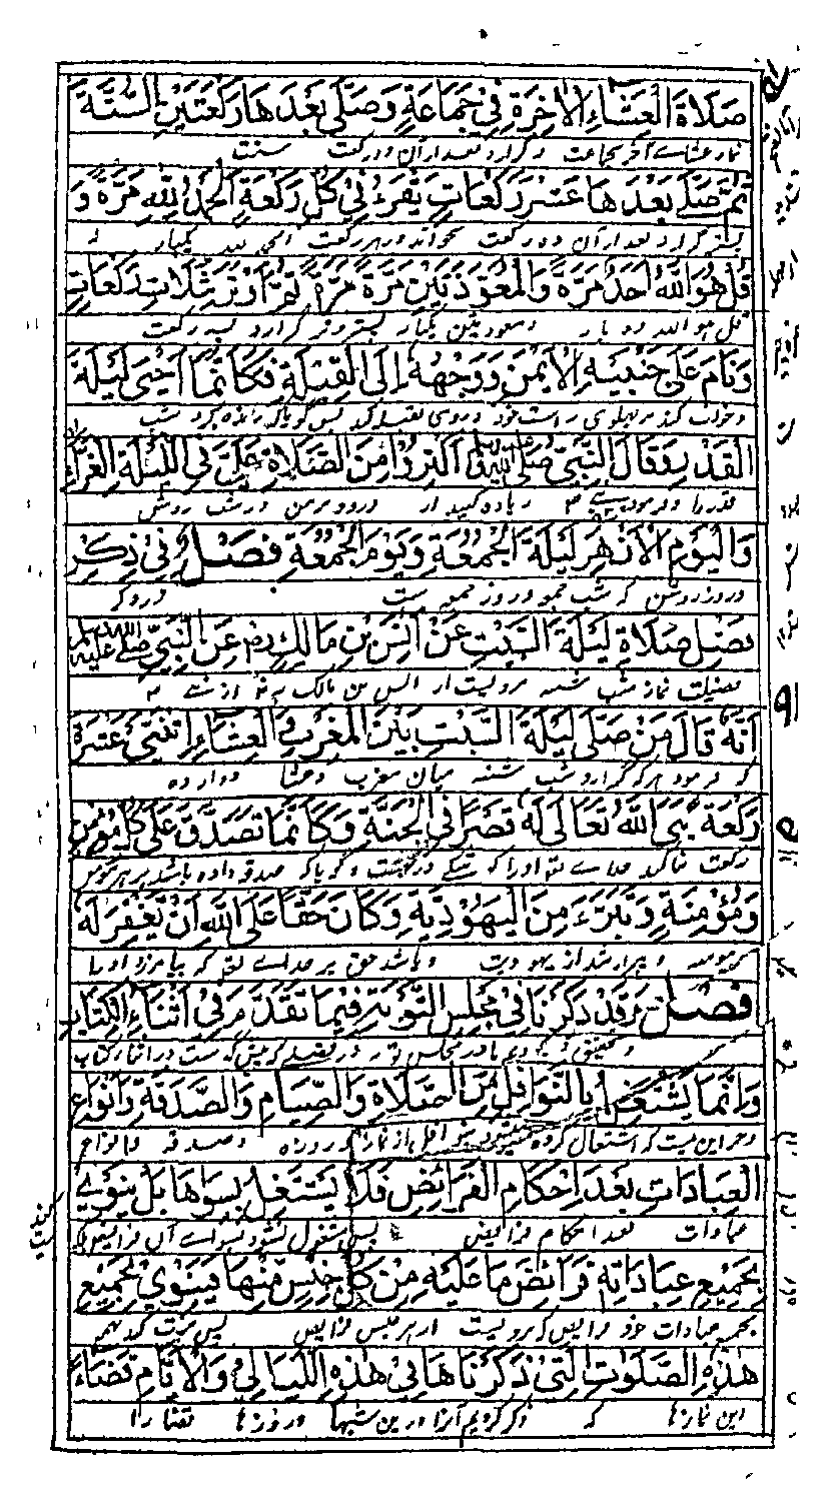 صَلَاةَ الْعِشَاءِ الْاٰخِرَةِ فِيْ جَمَاعَةٍ وَصَلّٰى بَعْدَهَا رَكْعَتَيْنِ السُّنَّةَ
نماز عشای آخر بجماعت و گزارد بعد ازان دو رکعت سنت
ثُمَّ صَلّٰى بَعْدَهَا عَشْرَ رَكَعَاتٍ يَقْرَءُ فِيْ كُلِّ رَكْعَةٍ اَلْحَمْدُ لِلّٰهِ مَرَّةً وَ
پستر گزارد بعد ازان ده رکعت بخواند در هر رکعت الحمد یکبار و
قُلْ هُوَ اللّٰهُ اَحَدٌ مَرَّةً وَالْمُعَوِّذَتَيْنِ مَرَّةً مَرَّةً ثُمَّ اَوْتَرَ بِثَلَاثِ رَكَعَاتٍ
قل هو الله دو بار و معوذتین یکبار پستر وتر گزارد بسه رکعت
وَنَامَ عَلٰى جَنْبِهِ الْاَيْمَنِ وَوَجْهُهٗ اِلَى الْقِبْلَةِ فَكَاَنَّمَا اَحْيٰى لَيْلَةَ
و خواب کند بر پهلوی راست خود و روی بقبله کند پس گویا که زنده کرد شب
الْقَدْرِ وَقَالَ النَّبِيُّ صَلَّى اللّٰهُ عَلَيْهِ وَسَلَّمَ اَكْثِرُوْا مِنَ الصَّلَاةِ عَلَيَّ فِي اللَّيْلَةِ الْغَرَّاءِ
قدر را و فرمود نبی ص زیاده کنید از درود بر من در شب روشن
وَالْيَوْمِ الْاَزْهَرِ لَيْلَةِ الْجُمُعَةِ وَيَوْمِ الْجُمُعَةِ فَصْلٌ فِيْ ذِكْرِ
و روز روشن که شب جمعه و روز جمعه ست در ذکر
فَضْلِ صَلَاةِ لَيْلَةِ السَّبْتِ عَنْ اَنَسِ بْنِ مَالِكٍ رض عَنِ النَّبِيِّ صَلَّى اللّٰهُ عَلَيْهِ وَسَلَّمَ
فضیلت نماز شب شنبه مرویست از انس بن مالک رض از نبی ص
اَنَّهٗ قَالَ مَنْ صَلّٰى لَيْلَةَ السَّبْتِ بَيْنَ الْمَغْرِبِ وَالْعِشَاءِ اثْنَتَيْ عَشْرَةَ
که فرمود هر که گزارد شب شنبه میان مغرب و عشا دوازده
رَكْعَةً بَنَى اللّٰهُ تَعَالٰى لَهٗ قَصْرًا فِي الْجَنَّةِ وَكَاَنَّمَا تَصَدَّقَ عَلٰى كُلِّ مُؤْمِنٍ
رکعت بنا کند خدای تعالی او را کوشکی در بهشت و گویا که صدقه داده باشد بر هر مومن
وَمُؤْمِنَةٍ وَتَبَرَّءَ مِنَ الْيَهُوْدِيَّةِ وَكَانَ حَقًّا عَلَى اللّٰهِ اَنْ يَّغْفِرَ لَهٗ
و مومنه و بیزار شد از یهودیت و باشد حق بر خدای تعالی که بیامرزد او را
فَصْلٌ وَقَدْ ذَكَرْنَا فِيْ مَجْلِسِ التَّوْبَةِ فِيْمَا تَقَدَّمَ فِيْ اَثْنَاءِ الْكِتَابِ
و بتحقیق ذکر کردیم ما در مجلس توبه در فصلی که پیش گذشت در اثنای کتاب
وَاِنَّمَا يَشْتَغِلُ بِالنَّوَافِلِ مِنَ الصَّلَاةِ وَالصِّيَامِ وَالصَّدَقَةِ وَاَنْوَاعِ
و جز این نیست که اشتغال کرده میشود بنوافل از نماز و روزه و صدقه و انواع
الْعِبَادَاتِ بَعْدَ اِحْكَامِ الْفَرَائِضِ فَلَا يَشْتَغِلُ بِسِوَاهَا بَلْ يَنْوِيْ
عبادات بعد احکام فرائض پس مشغول نشود بسوای آن فرائض بلکه
بِجَمِيْعِ عِبَادَاتِهٖ فَرَائِضَ مَا عَلَيْهِ مِنْ كُلِّ جِنْسٍ مِّنْهَا فَيَنْوِيْ بِجَمِيْعِ
بجمیع عبادات خود فرائض که بروست از هر جنس فرائض پس نیت کند بهمه
هٰذِهِ الصَّلَوَاتِ الَّتِيْ ذَكَرْنَاهَا فِيْ هٰذِهِ اللَّيَالِيْ وَالْاَيَّامِ قَضَاءً
این نمازها که ذکر کردیم آنرا درین شبها و روزها قضا را